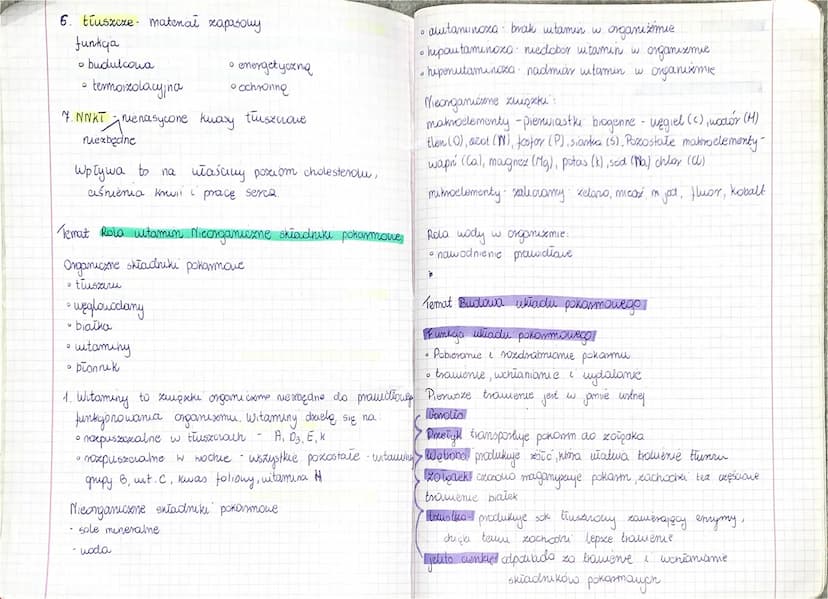 6. tłuszcze - materiał zapasowy
funkcja
• budulcowa • energetyczną
• termoizolacyjna • ochronną
7. NNKT - nienasycone kwasy tłuszczowe
niezbędne
Wpływa to na właściwy poziom cholesterolu,
ciśnienia krwi i pracę serca.
Temat Rola witamin Nieorganiczne składniki pokarmowe
Organiczne składniki pokarmowe
• tłuszcze
• węglowodany
• białka
• witaminy
• błonnik
1. Witaminy to związki organiczne niezbędne do prawidłowego
funkcjonowania organizmu. Witaminy dzielą się na:
• rozpuszczalne w tłuszczach - A, D3, E, K
• rozpuszczalne w wodzie - wszystkie pozostałe - witaminy
grupy B, wit. C, kwas foliowy, witamina H
Nieorganiczne składniki pokarmowe
- sole mineralne
- woda
• awitaminoza - brak witamin w organizmie
• hipowitaminoza - niedobór witamin w organizmie
• hiperwitaminoza - nadmiar witamin w organizmie
Nieorganiczne związki:
makroelementy - pierwiastki biogenne - węgiel (C), wodór (H)
tlen (O), azot (N), fosfor (P), siarka (S). Pozostałe makroelementy -
wapń (Ca), magnez (Mg), potas (K), sód (Na) chlor (Cl)
mikroelementy - zaliczamy: żelazo, miedź, jod, fluor, kobalt
Rola wody w organizmie:
• nawodnienie prawidłowe
Temat Budowa układu pokarmowego
Funkcja układu pokarmowego
• Pobieranie i rozdrabnianie pokarmu
• trawienie, wchłanianie i wydalanie
Pierwsze trawienie jest w jamie ustnej
Gardło
Przełyk transportuje pokarm do żołądka
Wątroba produkuje żółć, która ułatwia trawienie tłuszczu
Żołądek czasowo magazynuje pokarm, zachodzi też częściowe
trawienie białek
trzustka - produkuje sok trzustkowy zawierający enzymy,
dzięki temu zachodzi lepsze trawienie
jelito cienkie odpowiada za trawienie i wchłanianie
składników pokarmowych